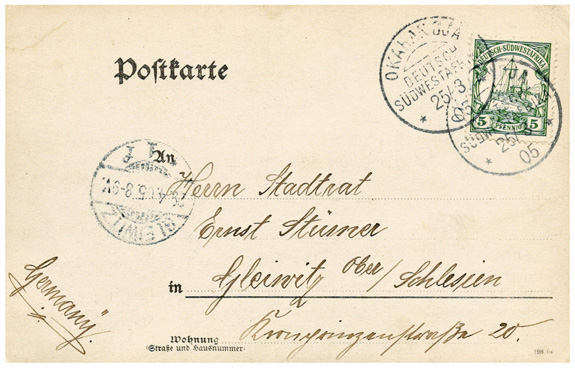 Postkarte
OKAHANDJA
DEUTSCH
SÜDWESTAFRIKA
25/3
05
DEUTSCH-SÜDWESTAFRIKA
5 PFENNIG 5
25/3
05
An
GLEIWITZ
Herrn Stadtrat
Ernst Stürmer
in Gleiwitz Ober/Schlesien
Germany.
Wohnung
(Straße und Hausnummer)
Kronprinzenstraße 20.